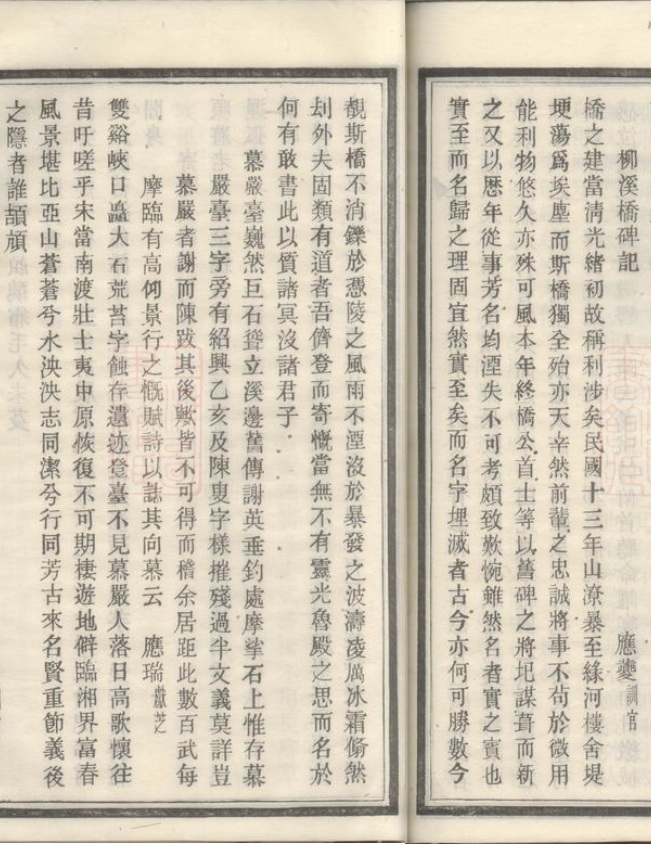 柳溪橋碑記　應夔訓官
橋之建當淸光緒初故稱利涉矣民國十三年山潦暴至緣河樓舍堤
埂蕩爲埃塵而斯橋獨全殆亦天幸然前輩之忠誠將事不苟於徵用
能利物悠久亦殊可風本年終橋公首士等以舊碑之將圯謀葺而新
之又以歷年從事芳名均湮失不可考頗致歎惋雖然名者實之賓也
實至而名歸之理固宜然實至矣而名字埋滅者古今亦何可勝數今
覩斯橋不消鑠於憑陵之風雨不湮沒於暴發之波濤凌厲冰霜翛然
刦外夫固類有道者吾儕登而寄慨當無不有靈光魯殿之思而名於
何有敢書此以質諸冥沒諸君子
慕嚴臺巍然巨石聳立溪邊舊傳謝英垂釣處摩挲石上惟存慕
嚴臺三字旁有紹興乙亥及陳叟字樣摧殘過半文義莫詳豈
慕嚴者謝而陳跋其後歟皆不可得而稽余居距此數百武每
摩臨有高仰景行之慨賦詩以誌其向慕云　應瑞獻芝
雙谿峽口矗大石荒苔字蝕存遺迹登臺不見慕嚴人落日高歌懷往
昔吁嗟乎宋當南渡壯士夷中原恢復不可期棲遊地僻臨湘界富春
風景堪比亞山蒼蒼兮水泱泱志同潔兮行同芳古來名賢重節義後
之隱者誰頡頏